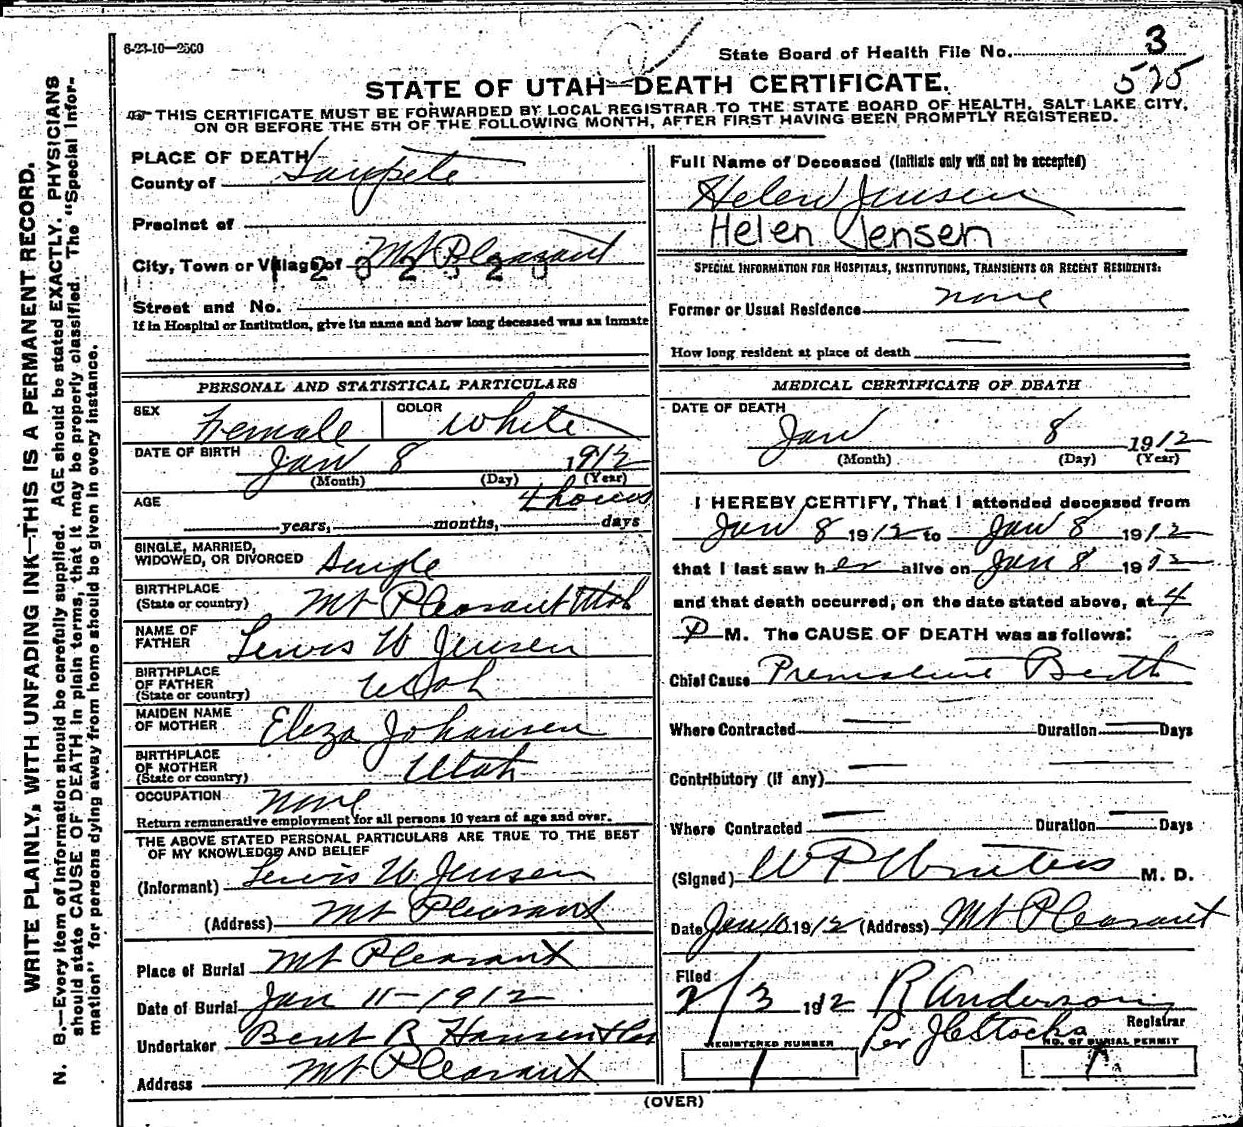 6-23-10—2500
State Board of Health File No. 3
525
STATE OF UTAH—DEATH CERTIFICATE.
THIS CERTIFICATE MUST BE FORWARDED BY LOCAL REGISTRAR TO THE STATE BOARD OF HEALTH, SALT LAKE CITY,
ON OR BEFORE THE 5TH OF THE FOLLOWING MONTH, AFTER FIRST HAVING BEEN PROMPTLY REGISTERED.
WRITE PLAINLY, WITH UNFADING INK—THIS IS A PERMANENT RECORD.
N. B.—Every item of information should be carefully supplied. AGE should be stated EXACTLY. PHYSICIANS
should state CAUSE OF DEATH in plain terms, that it may be properly classified. The "Special Infor-
mation" for persons dying away from home should be given in every instance.
PLACE OF DEATH
County of Sanpete
Precinct of
City, Town or Village of Mt Pleasant
Street and No.
If in Hospital or Institution, give its name and how long deceased was an inmate
PERSONAL AND STATISTICAL PARTICULARS
SEX Female COLOR White
DATE OF BIRTH Jan 8 1912
(Month) (Day) (Year)
AGE 4 hours
years, months, days
SINGLE, MARRIED,
WIDOWED, OR DIVORCED Single
BIRTHPLACE
(State or country) Mt Pleasant Utah
NAME OF
FATHER Lewis W Jensen
BIRTHPLACE
OF FATHER
(State or country) Utah
MAIDEN NAME
OF MOTHER Eliza Johansen
BIRTHPLACE
OF MOTHER
(State or country) Utah
OCCUPATION None
Return remunerative employment for all persons 10 years of age and over.
THE ABOVE STATED PERSONAL PARTICULARS ARE TRUE TO THE BEST
OF MY KNOWLEDGE AND BELIEF
(Informant) Lewis W. Jensen
(Address) Mt Pleasant
Place of Burial Mt Pleasant
Date of Burial Jan 11-1912
Undertaker Bent R Hansen & Co
Address Mt Pleasant
Full Name of Deceased (Initials only will not be accepted)
Helen Jensen
Helen Jensen
SPECIAL INFORMATION FOR HOSPITALS, INSTITUTIONS, TRANSIENTS OR RECENT RESIDENTS:
Former or Usual Residence none
How long resident at place of death —
MEDICAL CERTIFICATE OF DEATH
DATE OF DEATH
Jan 8 1912
(Month) (Day) (Year)
I HEREBY CERTIFY, That I attended deceased from
Jan 8 1912 to Jan 8 1912
that I last saw her alive on Jan 8 1912
and that death occurred, on the date stated above, at 4
P M. The CAUSE OF DEATH was as follows:
Chief Cause Premature Birth
Where Contracted — Duration — Days
Contributory (if any) —
Where Contracted — Duration — Days
(Signed) W P Winters M. D.
Date Jan 10 1912 (Address) Mt Pleasant
Filed
2/3 1912 R Anderson
Per J C Stocks Registrar
REGISTERED NUMBER NO. OF BURIAL PERMIT
1 1
(OVER)